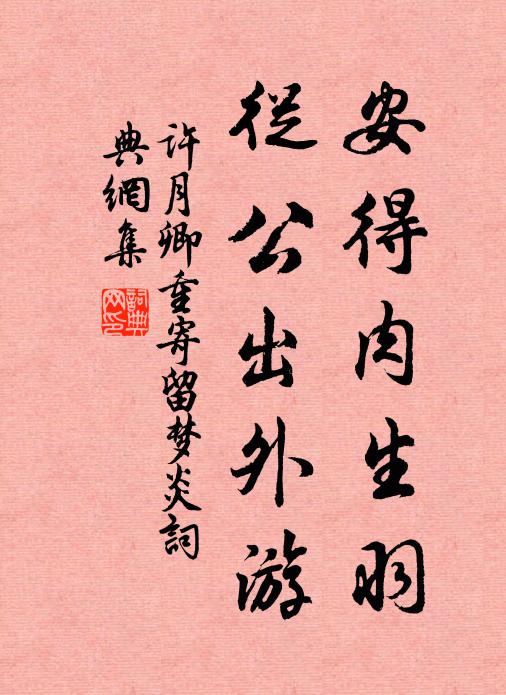 安得肉生羽
從公出外游
許月卿重寄留梦炎詞
典網集
詞典网印